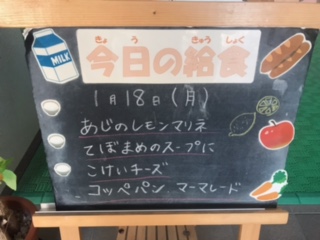 MILK
きょう きゅうしょく
今日の給食
1月18日(月)
あじのレモンマリネ
てぼまめのスープに
こけいチーズ
コッペパン マーマレード